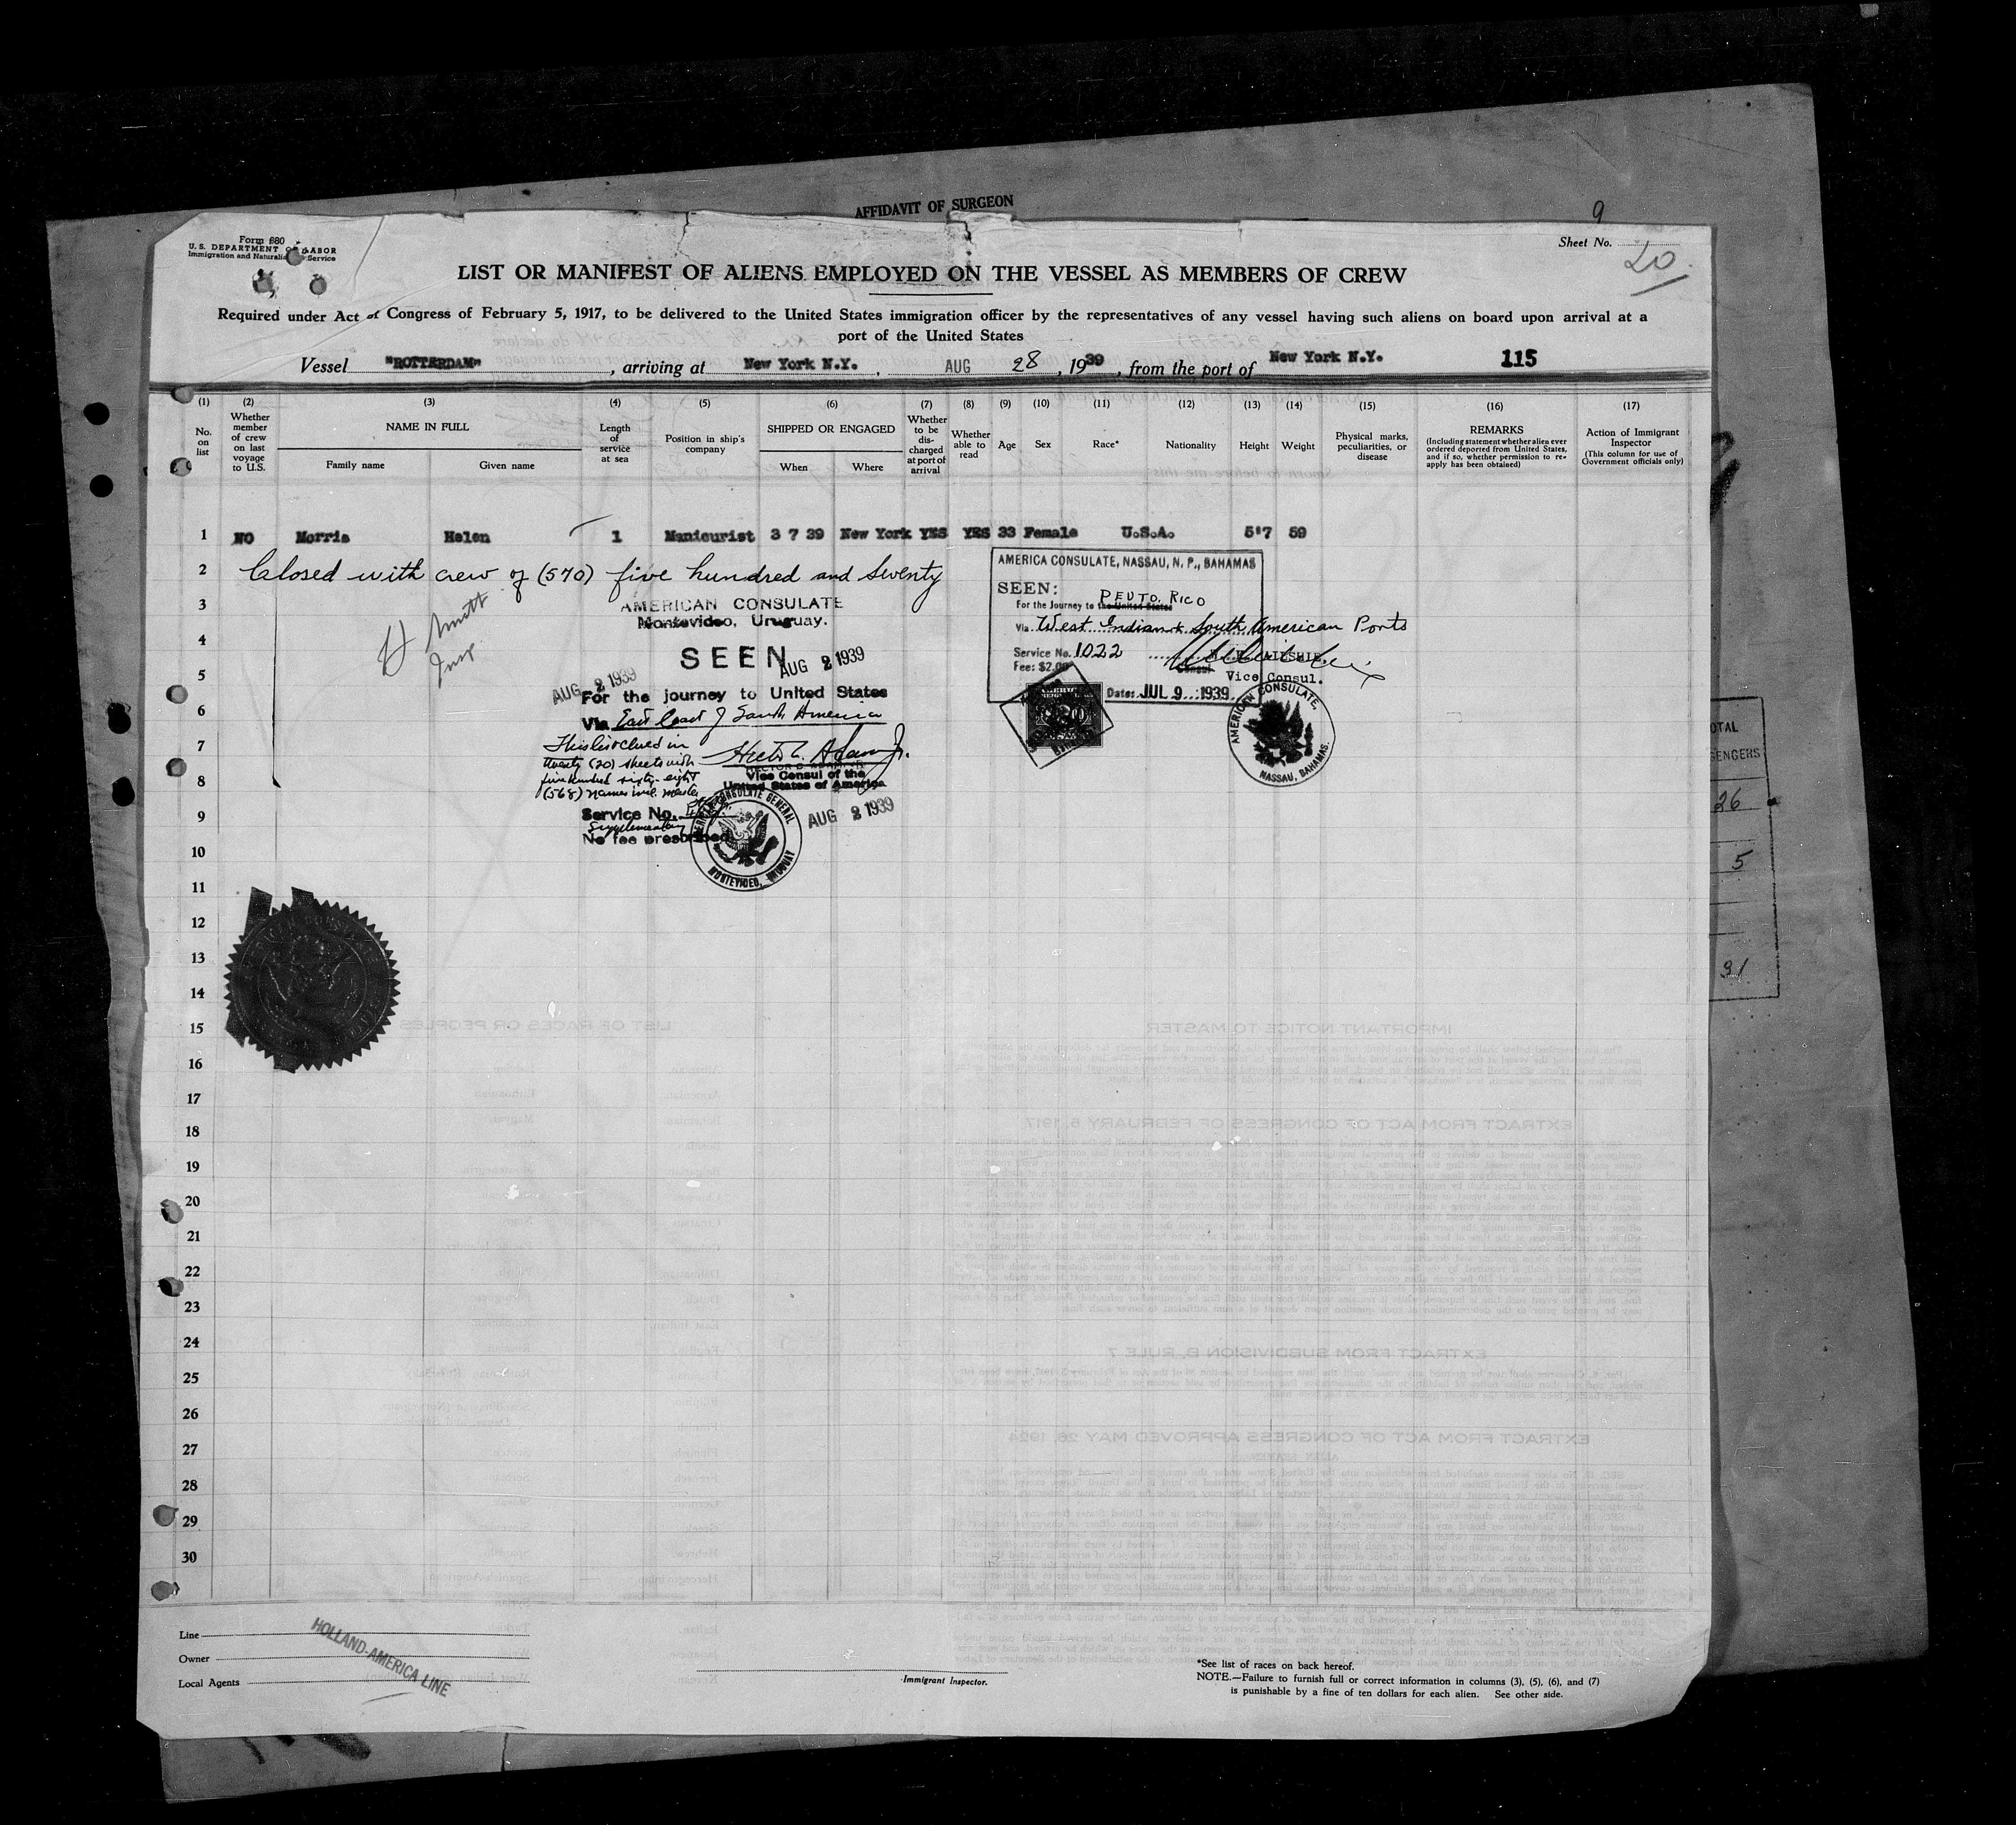 AFFIDAVIT OF SURGEON
9
Form 680
U. S. DEPARTMENT OF LABOR
Immigration and Naturalization Service
Sheet No.
20
LIST OR MANIFEST OF ALIENS EMPLOYED ON THE VESSEL AS MEMBERS OF CREW
Required under Act of Congress of February 5, 1917, to be delivered to the United States immigration officer by the representatives of any vessel having such aliens on board upon arrival at a
port of the United States
Vessel "ROTTERDAM", arriving at New York N.Y., AUG 28, 1939, from the port of New York N.Y. 115
(1) (2) (3) (4) (5) (6) (7) (8) (9) (10) (11) (12) (13) (14) (15) (16) (17)
No. on list
Whether member of crew on last voyage to U.S.
NAME IN FULL
Family name
Given name
Length of service at sea
Position in ship's company
SHIPPED OR ENGAGED
When
Where
Whether to be discharged at port of arrival
Whether able to read
Age
Sex
Race*
Nationality
Height
Weight
Physical marks, peculiarities, or disease
REMARKS
(Including statement whether alien ever ordered deported from United States, and if so, whether permission to reapply has been obtained)
Action of Immigrant Inspector
(This column for use of Government officials only)
1 NO Morris Helen 1 Manicurist 3 7 39 New York YES YES 33 Female U.S.A. 5'7 59
2 Closed with crew of (570) five hundred and seventy
3
4
5
6
7
8
9
10
11
12
13
14
15
16
17
18
19
20
21
22
23
24
25
26
27
28
29
30
Insp
AMERICAN CONSULATE
Montevideo, Uruguay.
SEEN
AUG 2 1939
AUG 2 1939
For the journey to United States
Via East Coast of South America
This list closed in
twenty (20) sheets with
five hundred sixty-eight
(568) names incl. master
Hector C. Adam Jr.
HECTOR C. ADAM, JR.
Vice Consul of the
United States of America
Service No.
Supplementary
No fee prescribed
AUG 2 1939
AMERICAN CONSULATE GENERAL
MONTEVIDEO, URUGUAY
AMERICA CONSULATE, NASSAU, N. P., BAHAMAS
SEEN:
For the Journey to the United States PEUTO. RICO
Via West Indian & South American Ports
Service No. 1022
Fee: $2.00
Consul
Vice Consul.
Date: JUL 9 1939
AMERICAN CONSULATE
NASSAU, BAHAMAS.
OTAL
SENGERS
26
5
31
Line
Owner
Local Agents
HOLLAND-AMERICA LINE
Immigrant Inspector.
*See list of races on back hereof.
NOTE.—Failure to furnish full or correct information in columns (3), (5), (6), and (7)
is punishable by a fine of ten dollars for each alien. See other side.